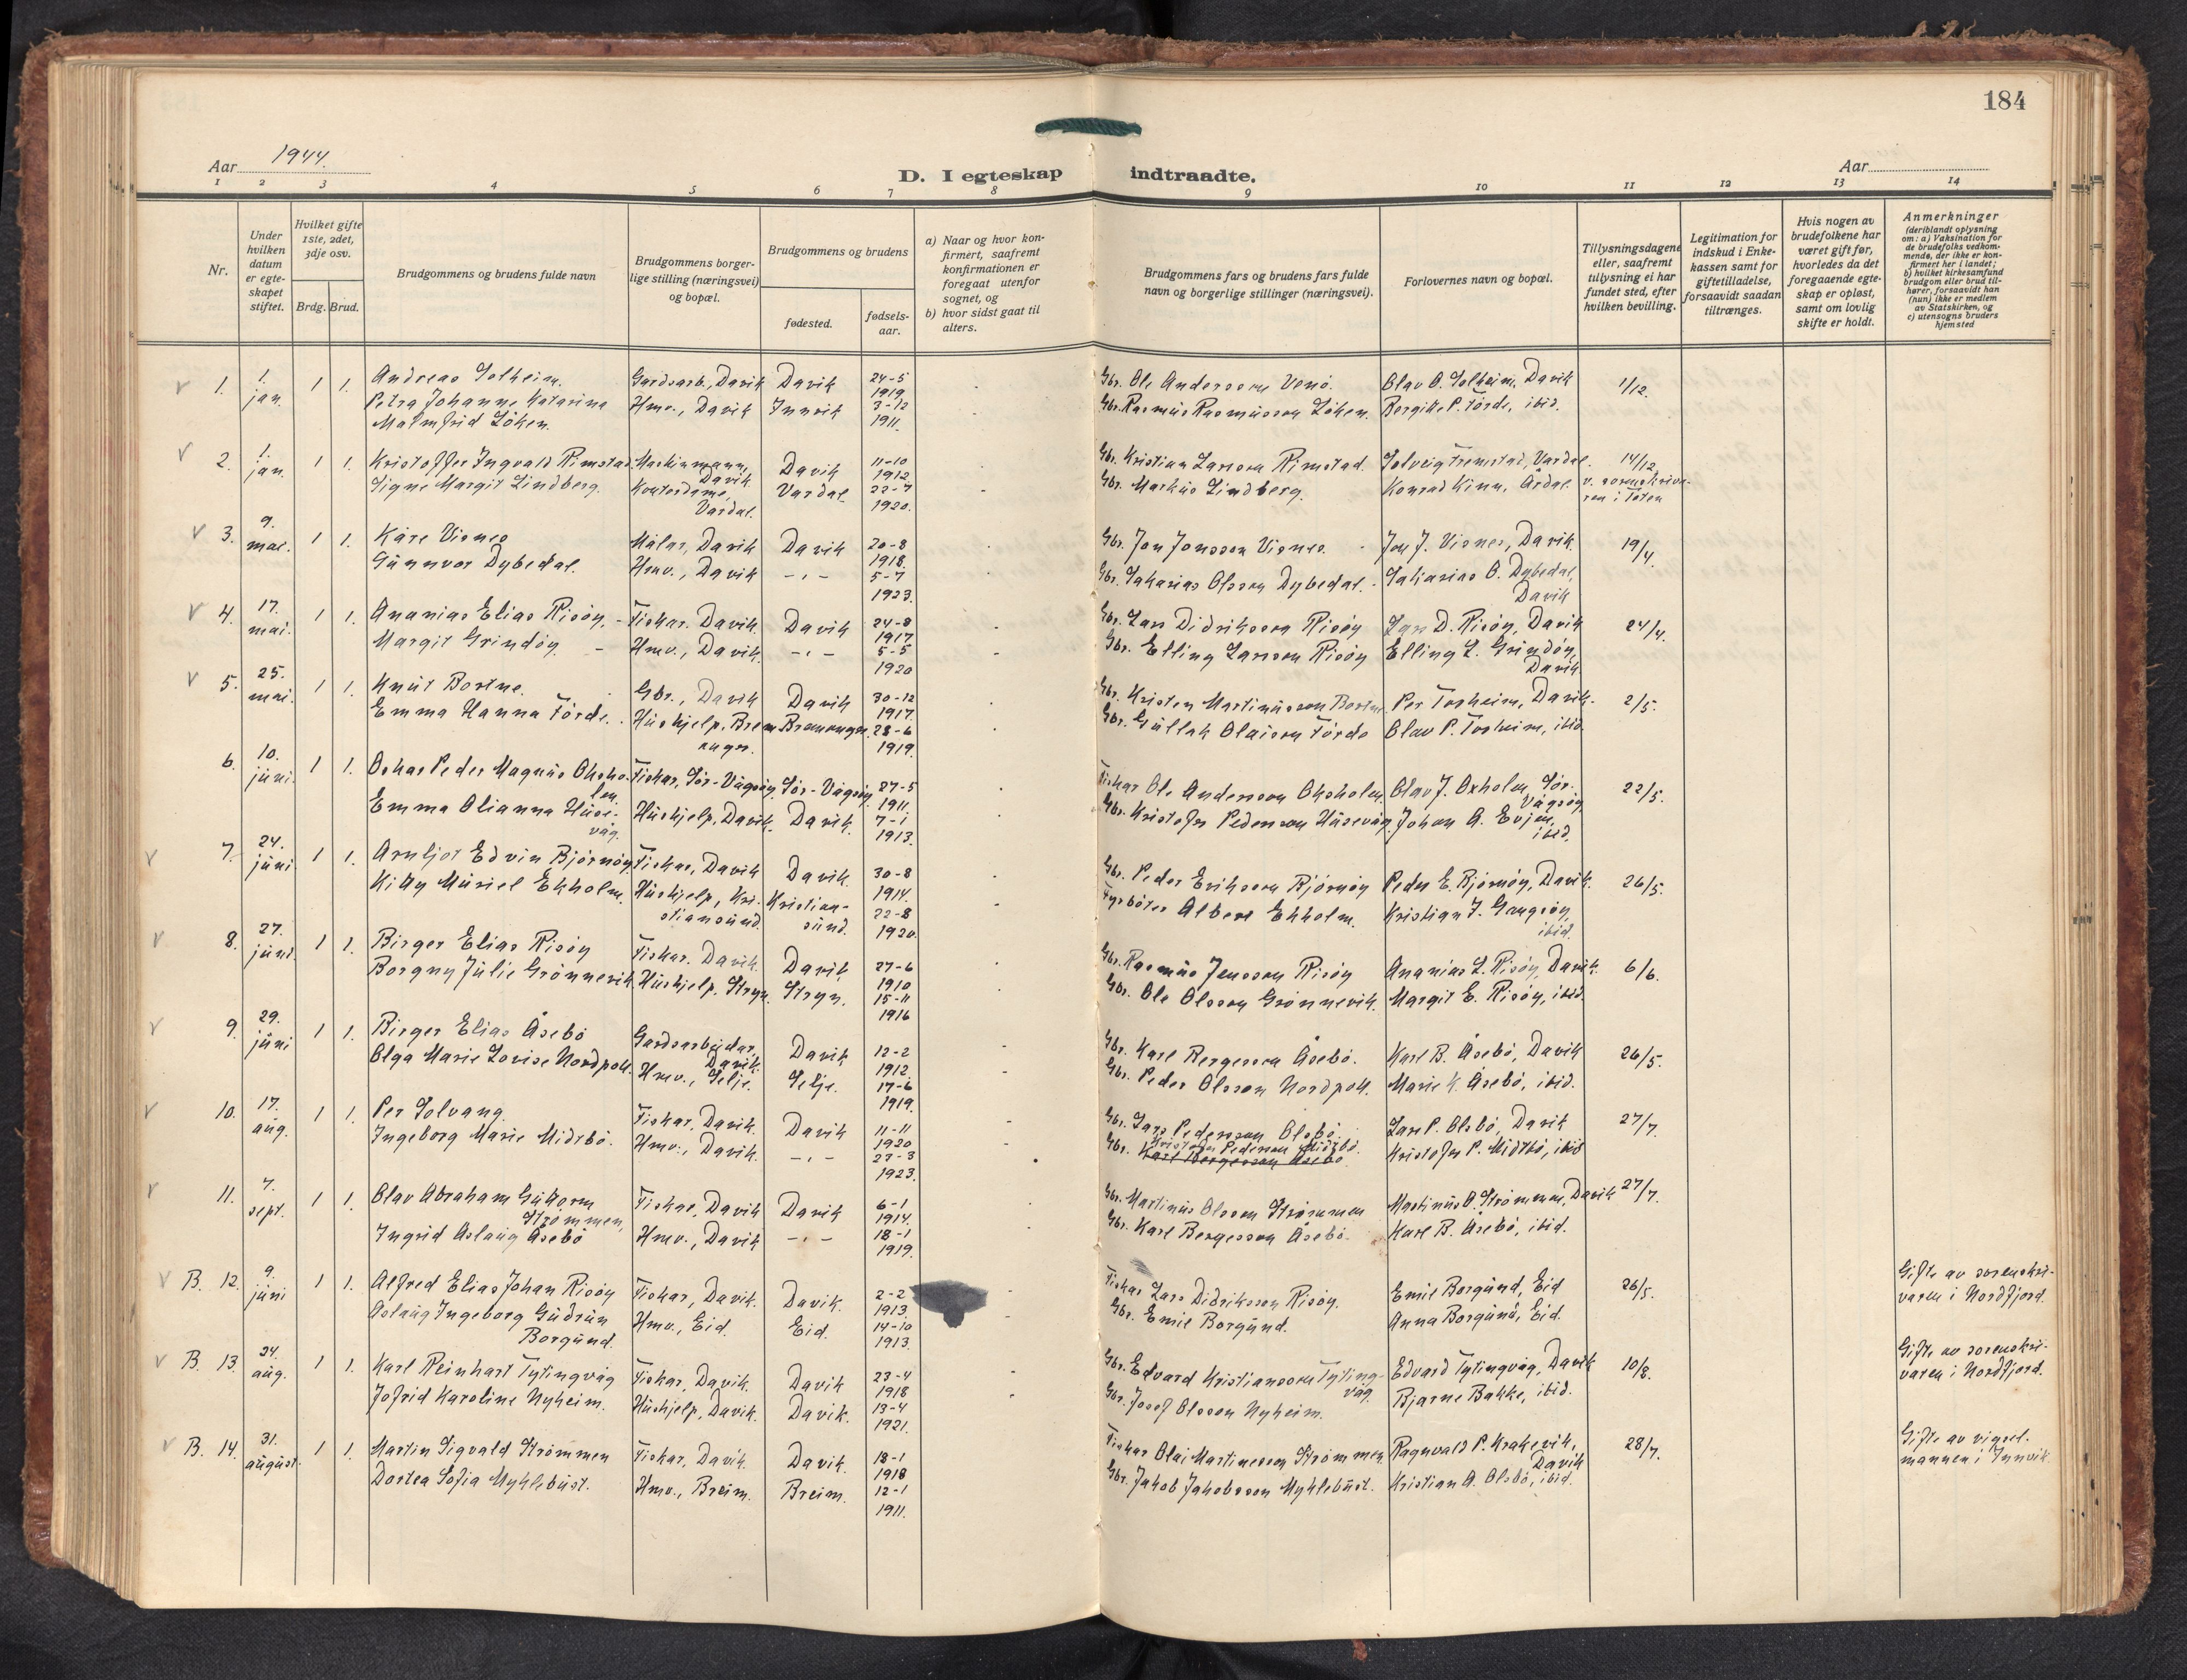 184
Aar 1944.
D. I egteskap indtraadte.
Aar
1 2 3 4 5 6 7 8 9 10 11 12 13 14
Nr.
Under hvilken datum er egteskapet stiftet.
Hvilket gifte 1ste, 2det, 3dje osv.
Brdg. Brud.
Brudgommens og brudens fulde navn
Brudgommens borgerlige stilling (næringsvei) og bopæl.
Brudgommens og brudens
fødested.
fødselsaar.
a) Naar og hvor konfirmert, saafremt konfirmationen er foregaat utenfor sognet, og
b) hvor sidst gaat til alters.
Brudgommens fars og brudens fars fulde navn og borgerlige stillinger (næringsvei).
Forlovernes navn og bopæl.
Tillysningsdagene eller, saafremt tillysning ei har fundet sted, efter hvilken bevilling.
Legitimation for indskud i Enkekassen samt for giftetilladelse, forsaavidt saadan tiltrænges.
Hvis nogen av brudefolkene har været gift før, hvorledes da det foregaaende egteskap er opløst, samt om lovlig skifte er holdt.
Anmerkninger (deriblandt oplysning om: a) Vaksination for de brudefolks vedkommende, der ikke er konfirmert her i landet; b) hvilket kirkesamfund brudgom eller brud tilhører, forsaavidt han (hun) ikke er medlem av Statskirken, og c) utensogns bruders hjemsted
1. 1. jan. 1 1. Andreas Solheim. Gardsarb., Davik Davik 24-5 1919 Gbr. Ole Andersson Venö. Olav O. Solheim, Davik 1/12.
Petra Johanne Katarina Malmfrid Löken. Hmv., Davik Innvik 3-12 1911. Gbr. Rasmus Rasmusson Löken. Borgitte P. Förde, ibid.
2. 1. jan. 1 1. Kristoffer Ingvald Rimstad. Maskinmann, Davik Davik 11-10 1912 Gbr. Kristian Larsson Rimstad. Solveig Fremstad, Vardal. 14/12
Signe Margit Lindberg. Kontordame, Vardal. Vardal 22-7 1920. Gbr. Markus Lindberg. Konrad Kinn, Årdal v. sorenskrivaren i Toten
3. 9. mai. 1 1. Kåre Visnes Målar, Davik Davik 20-8 1918. Gbr. Jon Jonsson Visnes. Jon J. Visnes, Davik. 19/4.
Gunnvor Dybedal. Hmv., Davik -,- 5-7 1923. Gbr. Sakarias Olsson Dybedal. Sakarias O. Dybedal, Davik
4. 17. mai. 1 1. Ananias Elias Risöy. Fiskar. Davik. Davik 24-8 1917 Gbr. Lars Didriksson Risöy Lars D. Risöy, Davik 24/4.
Margit Grindöy. Hmv., Davik. -,- 5-5 1920 Gbr. Elling Larsson Risöy Elling L. Grindöy, Davik
5. 25. mai. 1 1. Knut Bortne. Gbr., Davik Davik 30-12 1917. Gbr. Kristen Martinusson Bortne Per Torheim, Davik. 2/5.
Emma Hanna Förde. Hushjelp, Bremanger. Bremanger. 28-6 1919. Gbr. Gullak Olaisson Förde Olav P. Torheim, ibid.
6. 10. juni. 1 1. Oskar Peder Magnus Oksholm. Fiskar, Sör-Vågsöy. Sör-Vågsöy 27-5 1911. Fiskar Ole Andersson Oksholm. Olav J. Oxholm, Sör-Vågsöy 22/5.
Emma Olianna Husevåg. Hushjelp, Davik. Davik. 7-1 1913. Gbr. Kristofer Pederson Husevåg. Johan A. Evjen, ibid.
7. 24. juni 1 1. Arnljot Edvin Björnöy Fiskar, Davik Davik. 30-8 1914. Gbr. Peder Eriksson Björnöy Peder E. Björnöy, Davik. 26/5.
Kitty Muriel Ekholm. Hushjelp, Kristiansund. Kristiansund. 22-8 1920. Fyrböter Albert Ekholm. Kristian J. Gangsöy, ibid.
8. 27. juni. 1 1. Birger Elias Risöy Fiskar. Davik. Davik 27-6 1910 Gbr. Rasmus Jensson Risöy Ananias L. Risöy, Davik. 6/6.
Borgny Julie Grönnevik Hushjelp. Stryn. Stryn. 15-11 1916 Gbr. Ole Olsson Grönnevik. Margit E. Risöy, ibid.
9. 29. juni 1 1. Birger Elias Åsebö Gardsarbeidar, Davik. Davik 12-2 1912. Gbr. Karl Bergesson Åsebö. Karl B. Åsebö, Davik 26/5.
Olga Marie Lovise Nordpoll. Hmv., Selje. Selje. 17-6 1919. Gbr. Peder Olsson Nordpoll. Marie K. Åsebö, ibid.
10. 17. aug. 1 1. Per Solvang. Fiskar, Davik. Davik 11-11 1920 Gbr. Lars Pedersson Olsbö. Lars P. Olsbö, Davik 27/7.
Ingeborg Marie Midtbö. Hmv., Davik. -,- 27-3 1923. Gbr. Kristofer Pederson Midtbö. Karl Bergesson Åsebö. Kristofer P. Midtbö, ibid
11. 7. sept. 1 1. Olav Abraham Guttorm Strömmen, Fiskar, Davik Davik 6-1 1914. Gbr. Martinus Olsson Strömmen Martinus O. Strömmen, Davik 27/7.
Ingrid Aslaug Åsebö Hmv., Davik -,- 18-1 1919. Gbr. Karl Bergesson Åsebö. Karl B. Åsebö, ibid.
B. 12. 9. juni 1 1. Alfred Elias Johan Risöy Fiskar, Davik. Davik. 2-2 1913. Fiskar Lars Didriksson Risöy. Emil Borgund, Eid 26/5. Gifte av sorenskrivaren i Nordfjord.
Aslaug Ingeborg Gudrun Borgund. Hmv., Eid. Eid. 14-10 1913. Gbr. Emil Borgund. Anna Borgund, Eid.
B. 13. 24. aug. 1 1. Karl Reinhart Tytingvåg Fiskar, Davik. Davik 23-4 1918 Gbr. Edvard Kristiansson Tytingvåg Edvard Tytingvåg, Davik 10/8. Gifte av sorenskrivaren i Nordfjord.
Jofrid Karoline Nyheim. Hushjelp, Davik. Davik. 13-4 1921. Gbr. Josef Olsson Nyheim. Bjarne Bakke, ibid.
B. 14. 31. august. 1 1. Martin Sigvald Strömmen Fiskar, Davik. Davik. 18-1 1918 Fiskar Olai Martinesson Strömmen Ragnvald P. Krakevik, Davik 28/7. Gifte av vigselmannen i Innvik.
Dortea Sofia Myklebust. Hmv., Breim. Breim. 12-1 1911. Gbr. Jakob Jakobsson Myklebust. Kristian A. Olsbö, ibid.